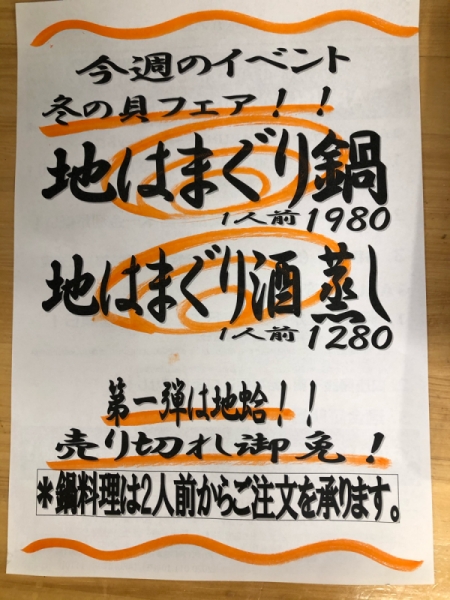 今週のイベント
冬の貝フェア！！
地はまぐり鍋
1人前1980
地はまぐり酒蒸し
1人前1280
第一弾は地蛤！！
売り切れ御免！
＊鍋料理は2人前からご注文を承ります。